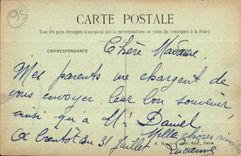 95
CARTE POSTALE
Tous les pays étrangers n'acceptent pas la correspondance au recto (se renseigner à la Poste)
CORRESPONDANCE
Chère Madame
Mes parents me chargent de
vous envoyer leur bon souvenir
ainsi qu'à Mr Daniel
A bientôt au 31 juillet Mille choses aimables
Lucienne